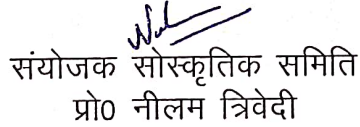 संयोजक सोस्कृतिक समिति
प्रो0 नीलम त्रिवेदी